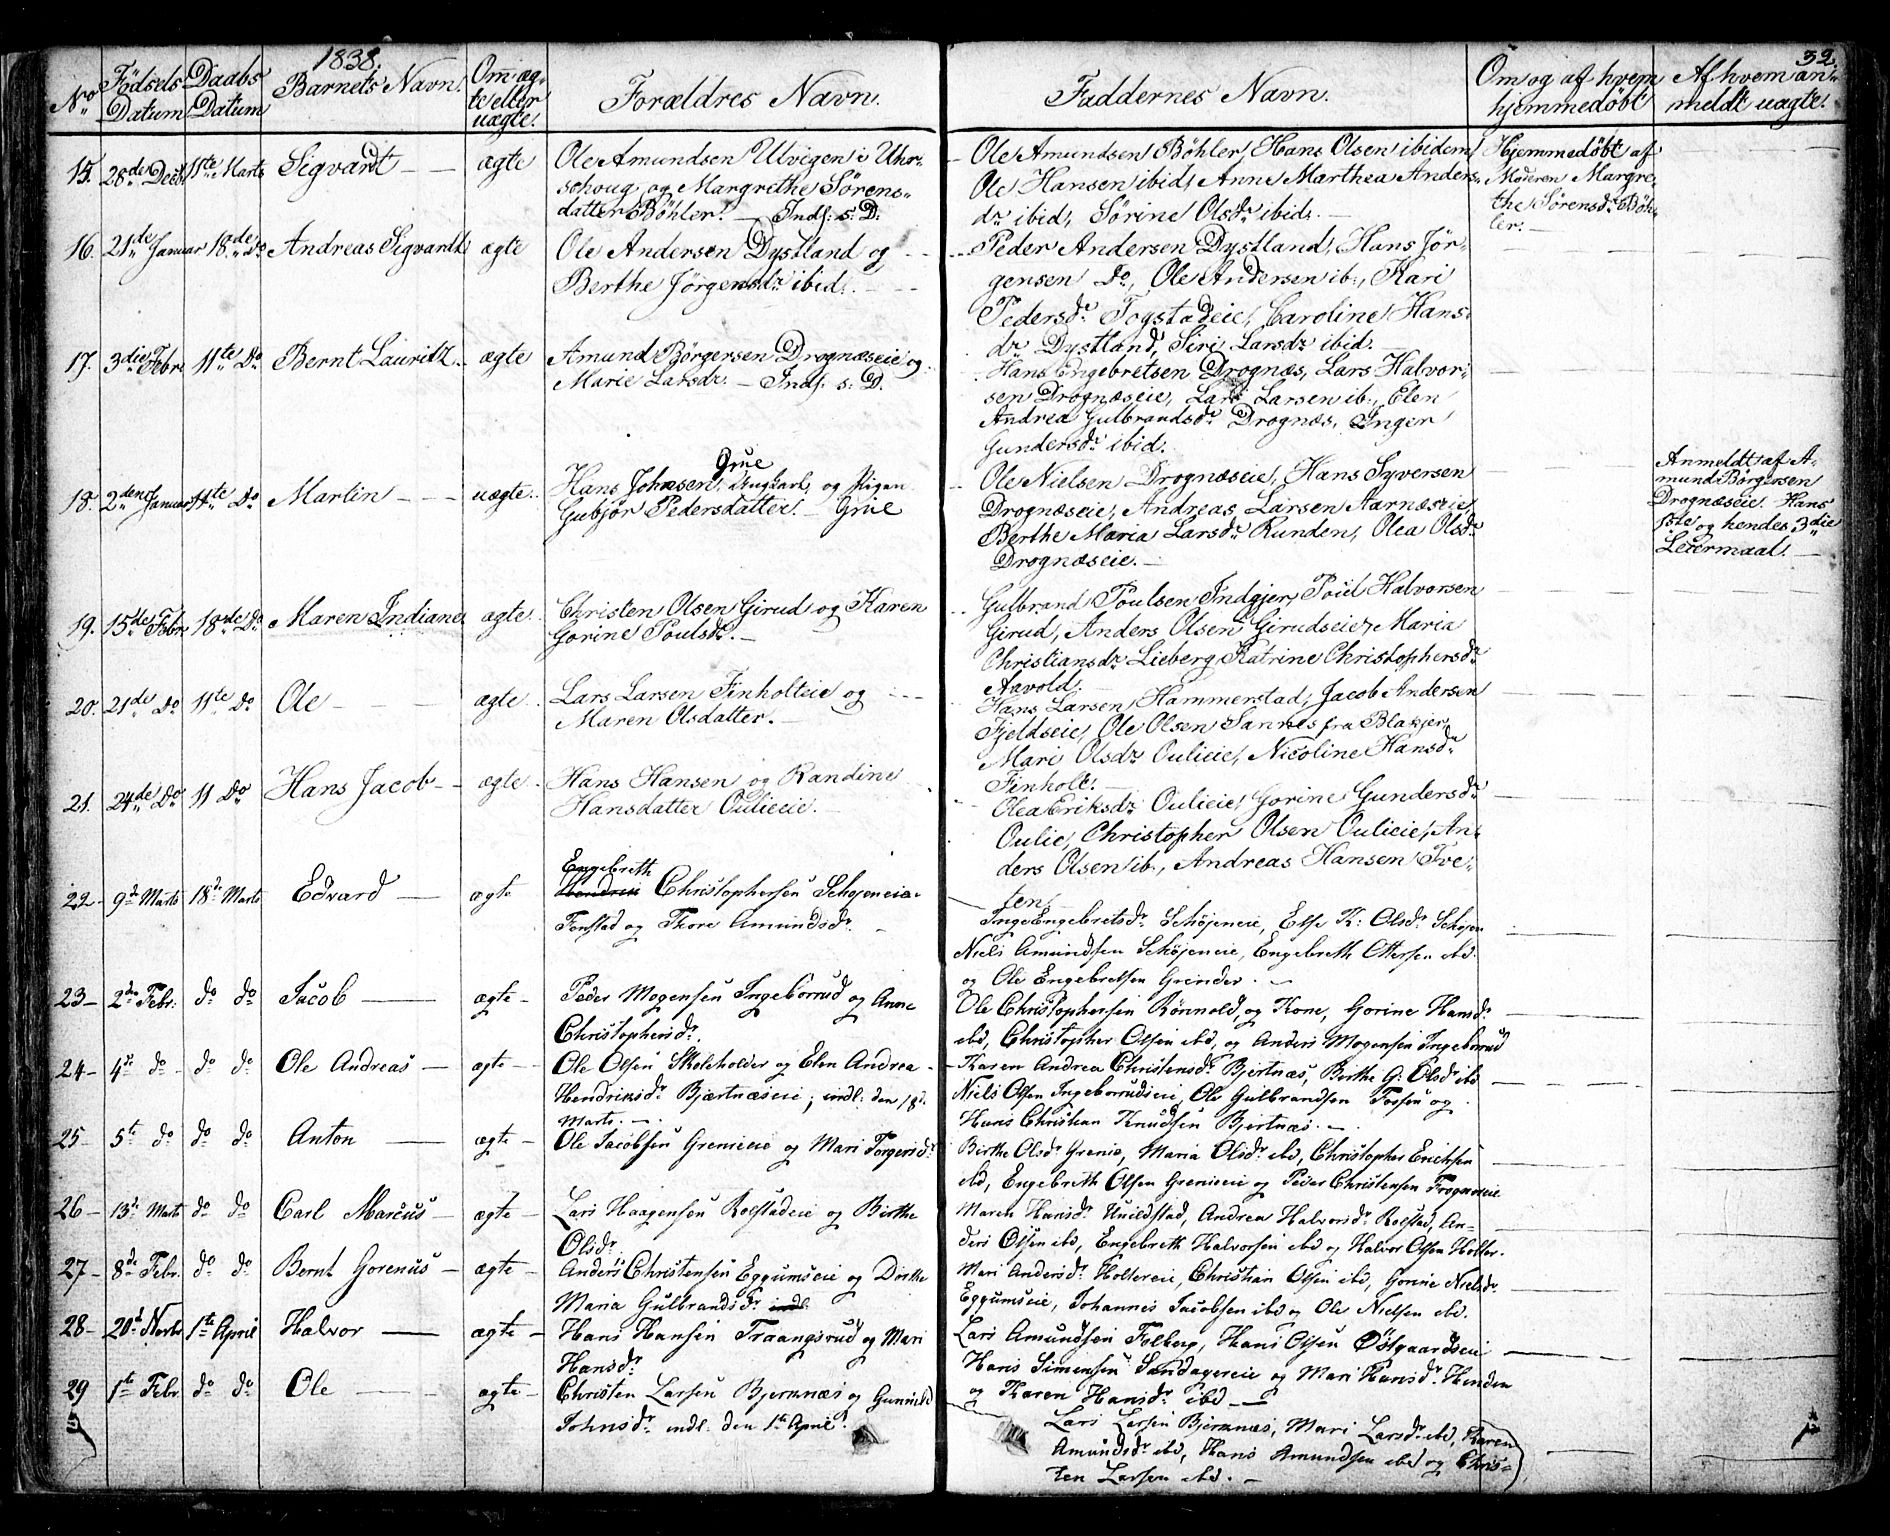 1838.
32.
No
Födsels Datum
Daabs Datum
Barnets Navn.
Om æg-
te eller
uægte.
Forældres Navn.
Faddernes Navn.
Om og af hvem
hjemmedøbt
Af hvem an-
meldt uægte.
15. 28de Decbr 11te Marts Sigvardt — ægte
Ole Amundsen Ulvigen i
og Margrethe Sørens-
datter Bøhler. — Indf: s: D:
Ole Amundsen Bøhler, Hans Olsen ibidem
Ole Hansen ibid, Anne Marthea Anders-
dr ibid, Sørine Olsdr ibid. —
Hjemmedøbt af
Moderen Margre-
the Sørensdr Bøh-
ler. —
16. 21de Januar 18de Do Andreas Sigvardt ægte
Ole Andersen Dystland og
Berthe Jørgensdr ibid.
Peder Andersen Dystland, Hans Jør-
gensen Do, Ole Andersen ib:, Kari
Pedersdr Togstadeie, Caroline Hans-
dr Dystland, Siri Larsdr ibid. —
17. 3die Febr. 11te Do Bernt Lauritz. ægte
Amund Börgersen Drognæseie og
Marie Larsdr. — Indf: s: D.
Hans Engebretsen Drognæs, Lars Halvor-
sen Drognæseie, Lars Larsen ib:, Elen
Andrea Gulbrandsdr Drognæs, Inger
Gundersdr ibid.
18. 2den Januar 11te Do Martin — uægte
Grue
Hans Johnsen, Ungkarl, og Pigen
Gubjör Pedersdatter. — Grue
Ole Nielsen Drognæseie, Hans Syversen
Drognæseie, Andreas Larsen Aarnæseie
Berthe Maria Larsdr Runden, Olea Olsdr
Drognæseie. —
Anmeldt af A-
mund Börgersen
Drognæseie. Hans
1ste og hendes 3die
Leiermaal. —
19. 15de Febr 18de Do Maren Indiane ægte
Christen Olsen Girud og Karen
Gorine Poulsdr. —
Gulbrand Poulsen Indgjer, Poul Halvorsen
Girud, Anders Olsen Girudseie, Maria
Christiansdr Lieberg, Katrine Christophersdr
Aavold. —
20. 21de Do 11te Do Ole — ægte
Lars Larsen Finholteie og
Maren Olsdatter. —
Hans Larsen Hammerstad, Jacob Andersen
Fjeldseie, Ole Olsen Sannes fra Blakjer,
Mari Olsdr Oulieie, Nicoline Hansdr
Finholt. —
21. 24de Do 11 Do Hans Jacob — ægte
Hans Hansen og Randine
Hansdatter Oulieie. —
Olea Eriksdr Oulieie, Gorine Gundersdr
Oulie, Christopher Olsen Oulieie, An-
ders Olsen ib:, Andreas Hansen Tve-
ten. —
22 - 9de Marts 18de Marts Edvard — ægte
Engebreth
Christophersen Schøjeneie
Fonstad og Thore Amundsdr. —
Inge Engebretsdr Schøjeneie, Else K: Olsdr Schøjen
Niels Amundsen Schøjeneie, Engebreth Ottersen ibd.
og Ole Engebretsen Grinder. —
23 - 2den Febr. do do Jacob — ægte -
Peder Mogensen Ingeborrud og Anne
Christophersdr.
Ole Christophersen Rønnold, og Kone, Gorine Hansdr
ibd, Christopher Olsen ibd, og Anders Mogensen Ingeborrud
24 - 4de do - do do Ole Andreas — ægte -
Ole Olsen Skoleholder og Elen Andrea
Hendriksdr Bjærtnæseie; indl: den 18de
Marts. —
Karen Andrea Christensdr Bjertnæs, Berthe G: Olsdr ibd
Niels Olsen Ingeborrudseie, Ole Gulbrandsen Fossen og
Hans Christian Knudsen Bjertnæs. —
25 - 5te do do do Anton — ægte -
Ole Jacobsen Grenieie og Mari Torgersdr
Birthe Olsdr Grenie, Maria Olsdr ibd, Christopher Erichsen
ibd, Engebreth Olsen Grenieie og Peder Christensen Frognæseie
26 - 13de Marts do do Carl Marcus — ægte -
Lars Haagensen Rolstadeie og Birthe
Olsdr
Maren Hansdr Huildstad, Andrea Halvorsdr Rolstad, An-
ders Olsen ibd, Engebreth Halvorsen ibd og Halvor Olsen Holter.
27 - 8de Febr. do do Bernt Gorenus — ægte -
Anders Christensen Eggumseie og Dorthe
Maria Gulbrandsdr indl.
Mari Andersdr Holtereie, Christian Olsen ibd, Gorine Nielsdr
Eggumseie, Johannes Jacobsen ibd og Ole Nielsen ibd.
28 - 20de Novbr 1te April Halvor — ægte -
Hans Hansen Traangsrud og Mari
Hansdr
Lars Amundsen Fylberg, Hans Olsen Østgaardseie
Hans Simensen Sandagereie og Mari Hansdr Henden
og Karen Hansdr ibd —
29 1te Febr. do do Ole — ægte -
Christen Larsen Bjerknæs og Gunnild
Johnsdr indl: den 1te April.
Lars Larsen Bjerknæs, Mari Larsdr ibd, Karen
Amundsdr ibd, Hans Amundsen ibd og Chris-
ten Larsen ibd. —